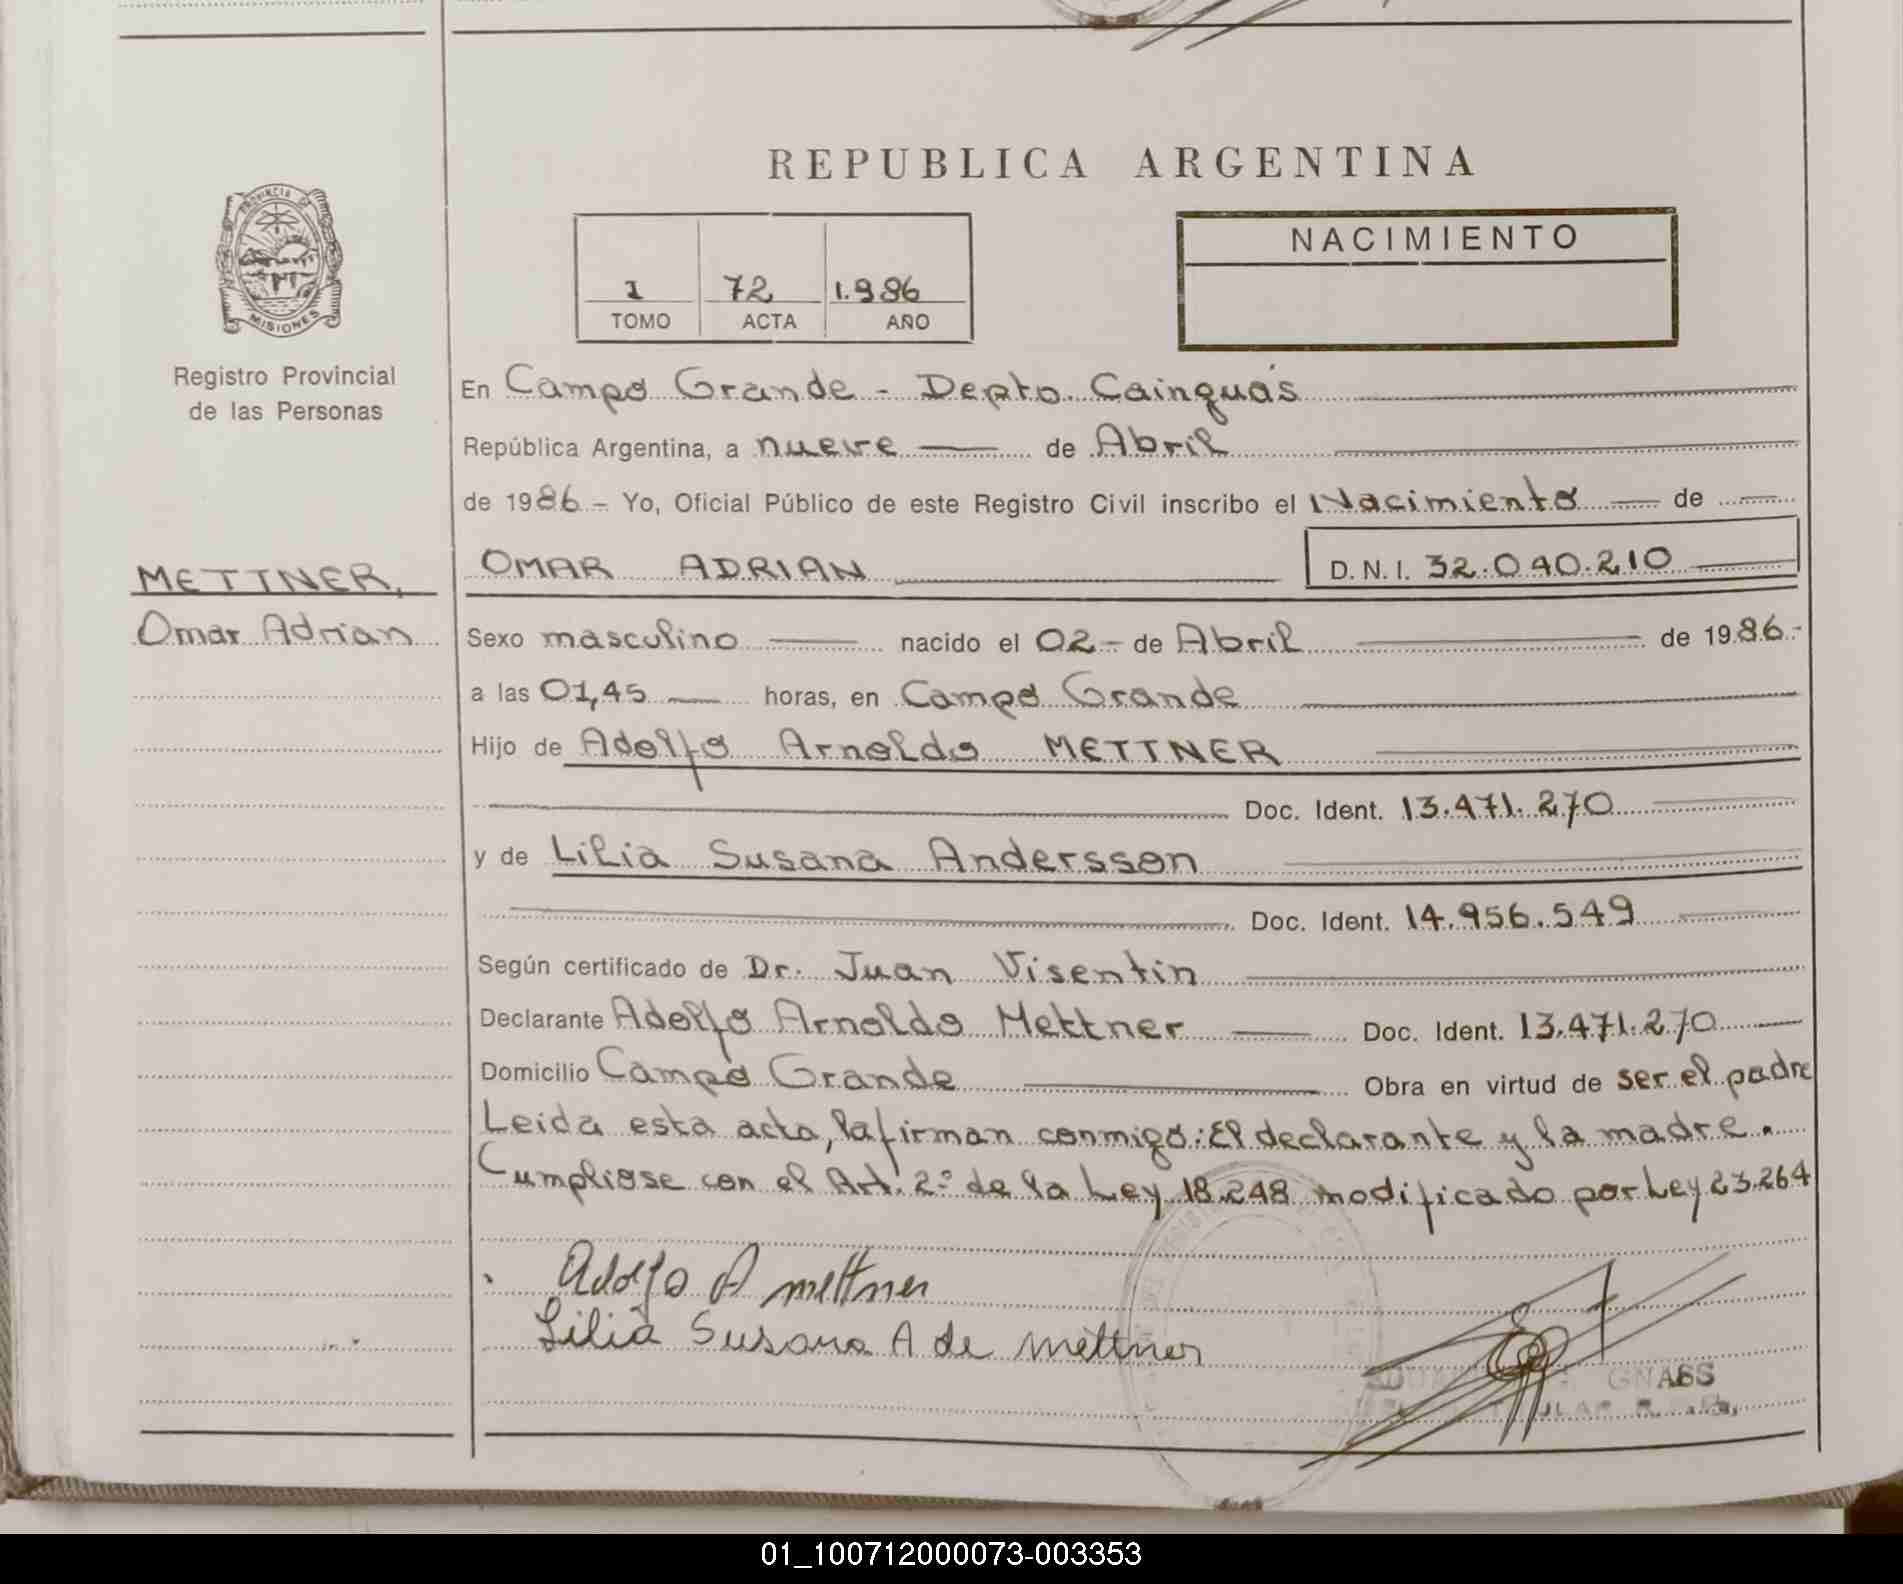 REPUBLICA ARGENTINA
PROVINCIA DE
MISIONES
Registro Provincial
de las Personas
1 72 1.986
TOMO ACTA AÑO
NACIMIENTO
En Campo Grande - Depto. Cainguás
República Argentina, a nueve de Abril
de 1986 - Yo, Oficial Público de este Registro Civil inscribo el Nacimiento de
METTNER,
Omar Adrian
OMAR ADRIAN D.N.I. 32.040.210
Sexo masculino nacido el 02 - de Abril de 1986.-
a las 01,45 horas, en Campo Grande
Hijo de Adolfo Arnoldo METTNER
Doc. Ident. 13.471.270
y de Lilia Susana Andersson
Doc. Ident. 14.956.549
Según certificado de Dr. Juan Visentin
Declarante Adolfo Arnoldo Mettner Doc. Ident. 13.471.270
Domicilio Campo Grande Obra en virtud de ser el padre
Leida esta acta, la firman conmigo: El declarante y la madre.
Cumpliose con el Art. 2º de la Ley 18.248 modificado por Ley 23.264
Adolfo A mettner
Lilia Susana A de mettner
01_100712000073-003353